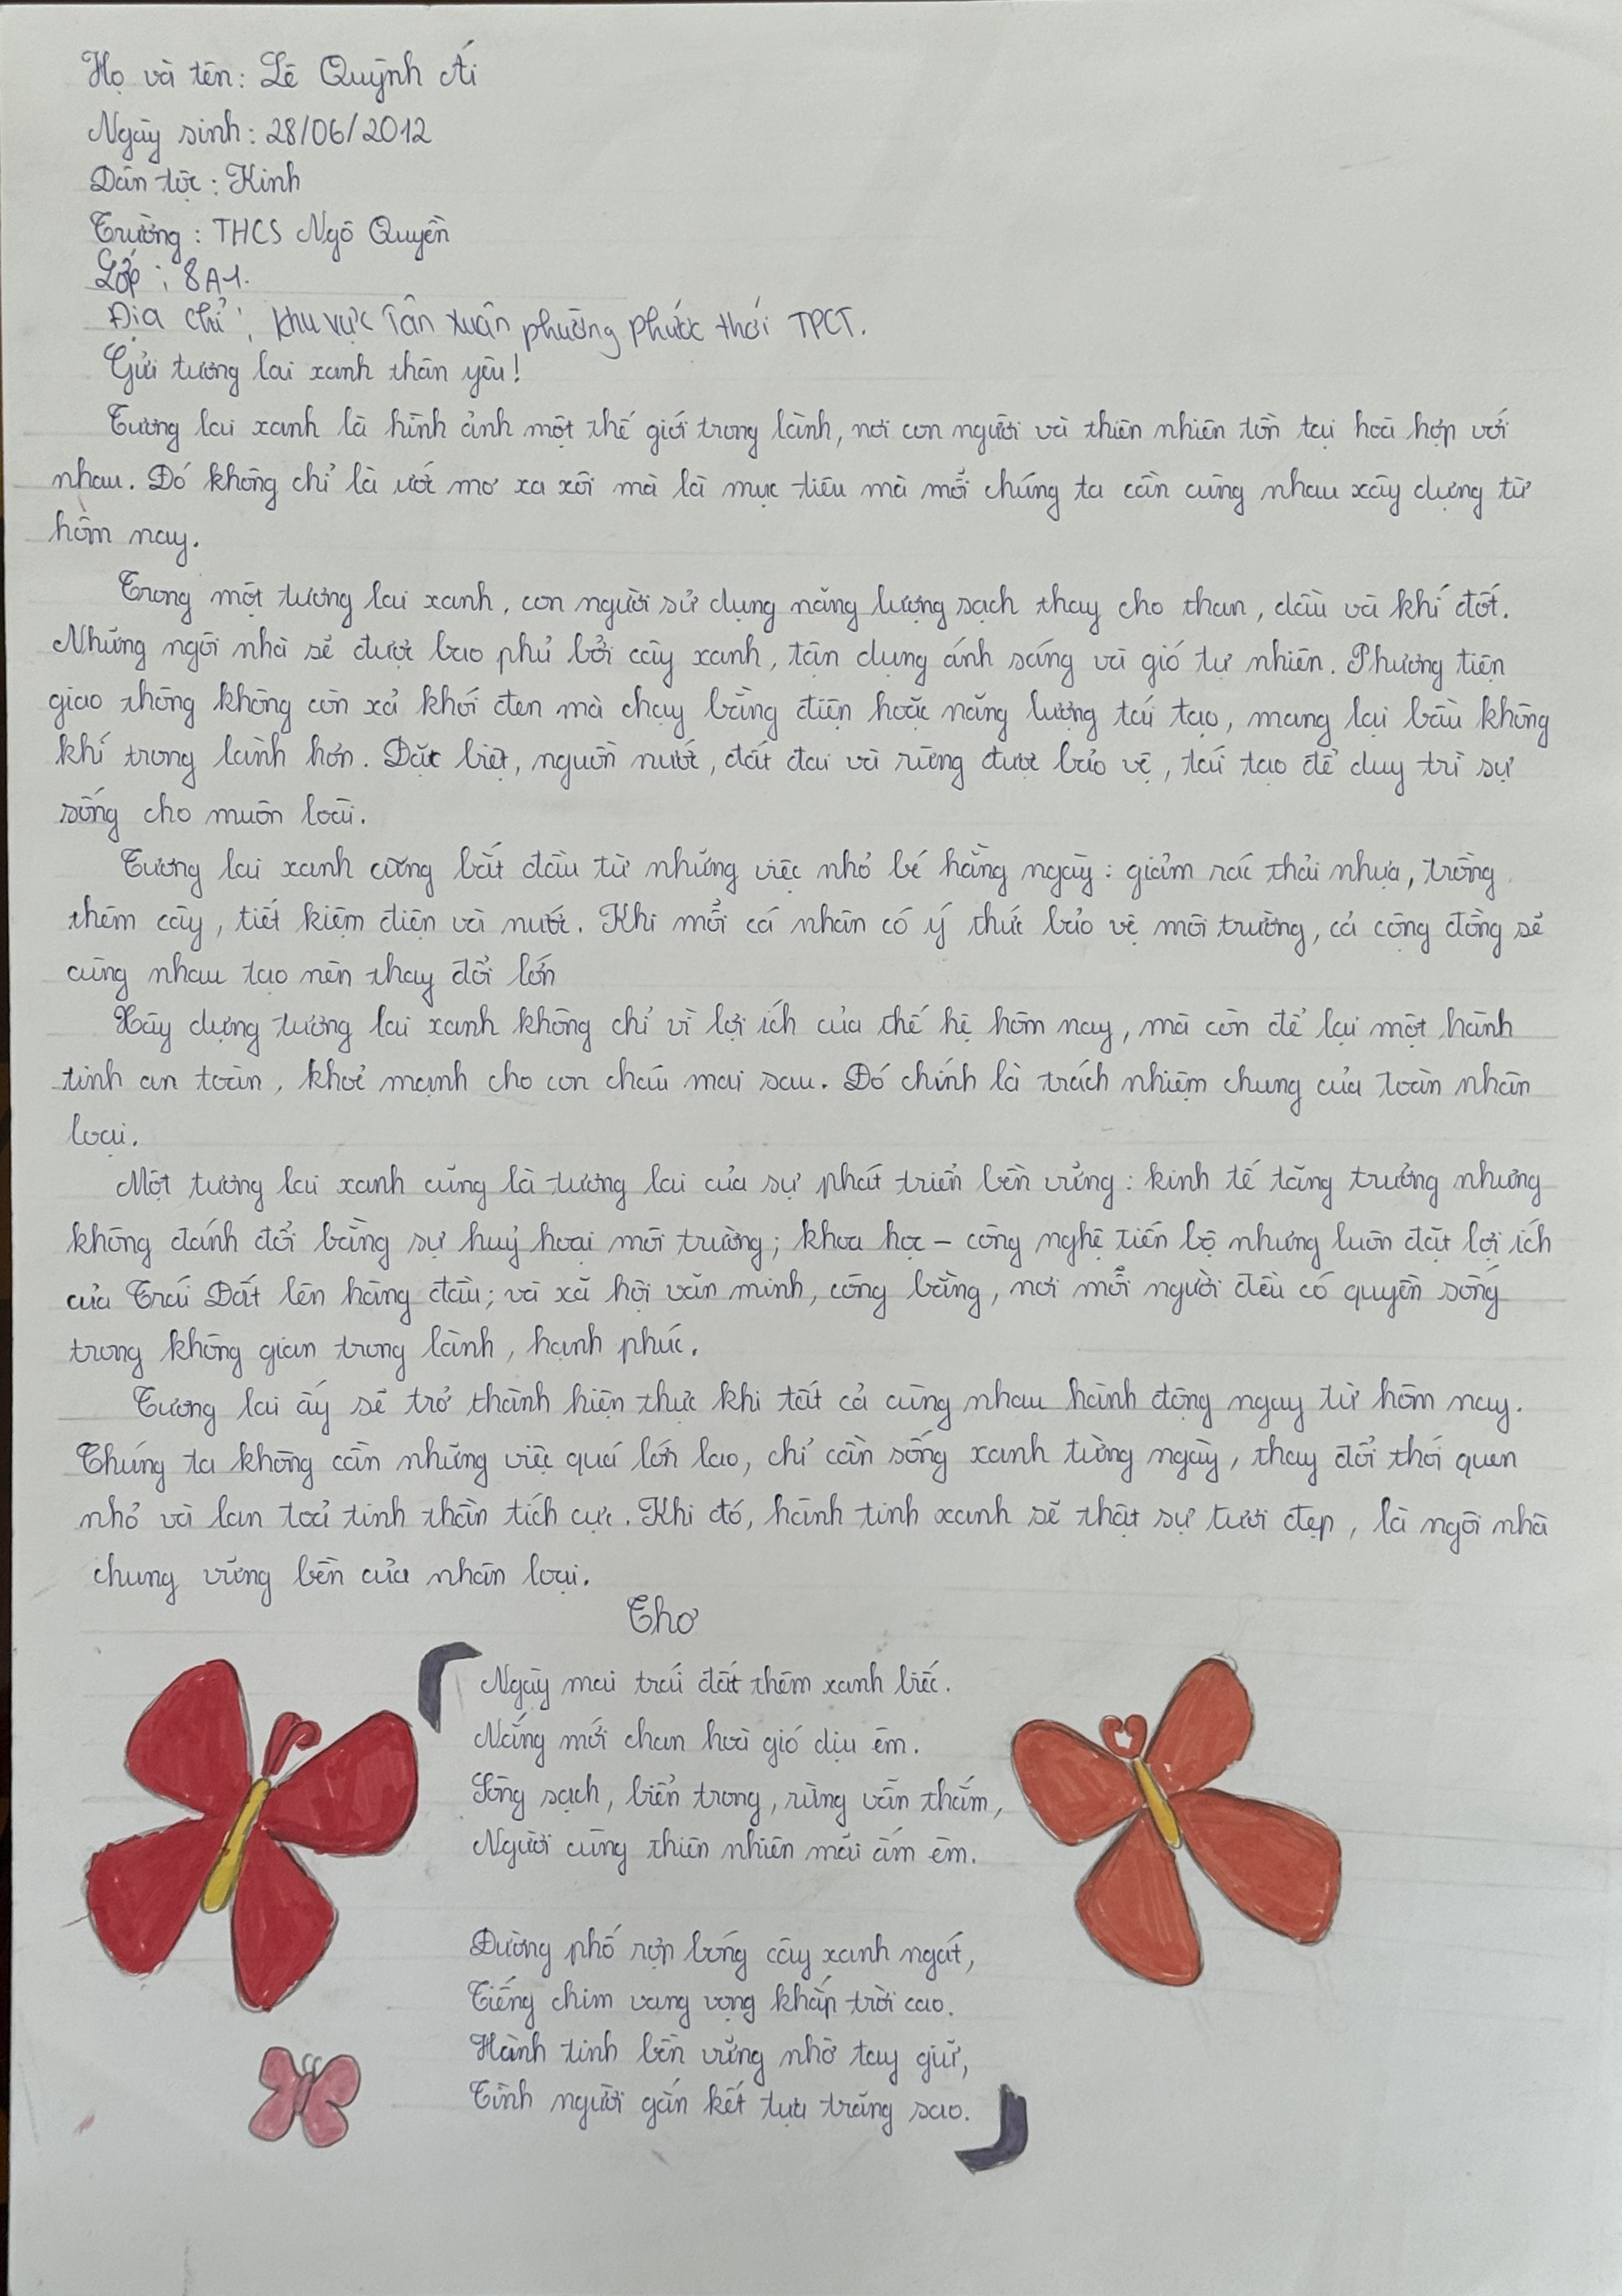 Họ và tên: Lê Quỳnh Ái
Ngày sinh: 28/06/2012
Dân tộc: Kinh
Trường: THCS Ngô Quyền
Lớp: 8A1.
Địa chỉ: khu vực Tân Xuân phường phước thới TPCT.
Gửi tương lai xanh thân yêu!
Tương lai xanh là hình ảnh một thế giới trong lành, nơi con người và thiên nhiên tồn tại hoà hợp với
nhau. Đó không chỉ là ước mơ xa xôi mà là mục tiêu mà mỗi chúng ta cần cùng nhau xây dựng từ
hôm nay.
Trong một tương lai xanh, con người sử dụng năng lượng sạch thay cho than, dầu và khí đốt.
Những ngôi nhà sẽ được bao phủ bởi cây xanh, tận dụng ánh sáng và gió tự nhiên. Phương tiện
giao thông không còn xả khói đen mà chạy bằng điện hoặc năng lượng tái tạo, mang lại bầu không
khí trong lành hơn. Đặc biệt, nguồn nước, đất đai và rừng được bảo vệ, tái tạo để duy trì sự
sống cho muôn loài.
Tương lai xanh cũng bắt đầu từ những việc nhỏ bé hằng ngày: giảm rác thải nhựa, trồng
thêm cây, tiết kiệm điện và nước. Khi mỗi cá nhân có ý thức bảo vệ môi trường, cả cộng đồng sẽ
cùng nhau tạo nên thay đổi lớn
Xây dựng tương lai xanh không chỉ vì lợi ích của thế hệ hôm nay, mà còn để lại một hành
tinh an toàn, khoẻ mạnh cho con cháu mai sau. Đó chính là trách nhiệm chung của toàn nhân
loại.
Một tương lai xanh cũng là tương lai của sự phát triển bền vững: kinh tế tăng trưởng nhưng
không đánh đổi bằng sự huỷ hoại môi trường; khoa học – công nghệ tiến bộ nhưng luôn đặt lợi ích
của Trái Đất lên hàng đầu; và xã hội văn minh, công bằng, nơi mỗi người đều có quyền sống
trong không gian trong lành, hạnh phúc.
Tương lai ấy sẽ trở thành hiện thực khi tất cả cùng nhau hành động ngay từ hôm nay.
Chúng ta không cần những việc quá lớn lao, chỉ cần sống xanh từng ngày, thay đổi thói quen
nhỏ và lan toả tinh thần tích cực. Khi đó, hành tinh xanh sẽ thật sự tươi đẹp, là ngôi nhà
chung vững bền của nhân loại.
Thơ
Ngày mai trái đất thêm xanh biếc.
Nắng mới chan hoà gió dịu êm.
Sông sạch, biển trong, rừng vẫn thắm,
Người cùng thiên nhiên mãi ấm êm.
Đường phố rợp bóng cây xanh ngát,
Tiếng chim vang vọng khắp trời cao.
Hành tinh bền vững nhờ tay giữ,
Tình người gắn kết tựa trăng sao.